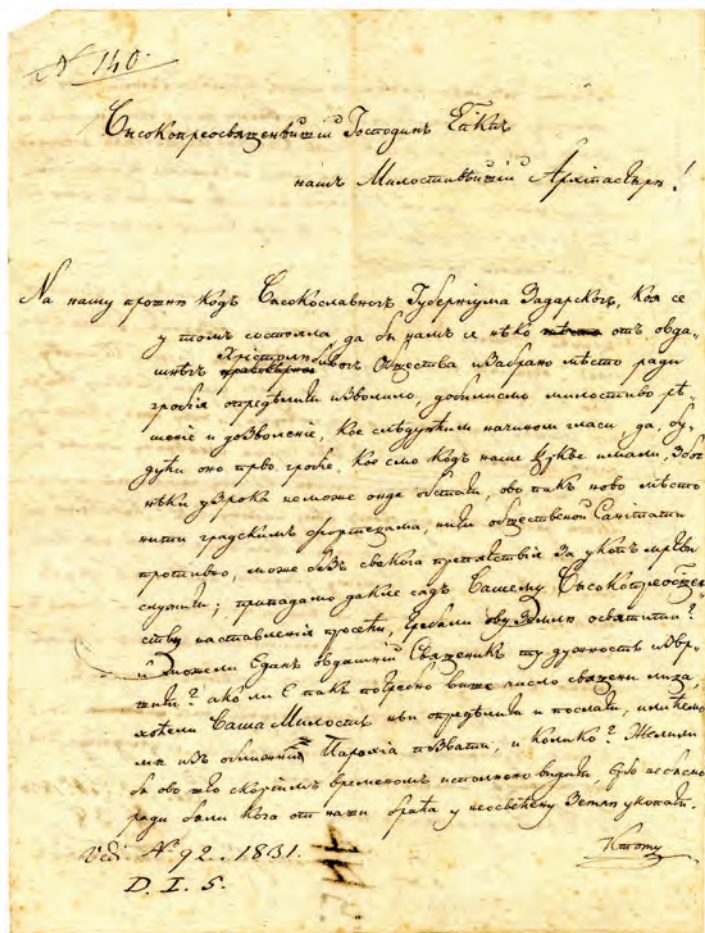 № 140.
Высокопреосвященнѣйшій Господинъ Епкпъ
нашъ Милостивѣйшій Архіпастырь!
На нашу прошню кодъ Высокославногъ Губерніума Задарскогъ, коя се
у томъ состояла да бы намъ се нѣко отъ овда-
шнѣгъ Христолюбивогъ Общества изабрано мѣсто ради
гробія опредѣлити изволило, добилисмо милостиво рѣ-
шеніе и дозволеніе, кое слѣдующимъ начиномъ гласи, да, бу-
дући оно прво гробіе, кое смо кодъ наше Цркве имали, збогъ
нѣки узрока неможе онде обстати, ово пакъ ново мѣсто
нити градскимъ фортецама, нити общественой Санітати
противно, може безъ свакога препятствія за укопъ мртви
служити; припадамо дакле садъ Вашему Высокопреосщен-
ству наставленія просећи, требали ову Землю освятити?
и можели Еданъ овдашній Священикъ ту дужность извр-
шити? ако ли Е пакъ потребно више число священи лица,
хоћели Ваша Милость њи опредѣлити и послати, или ћемо
ми изъ оближнѣ Парохіа позвати, и колико? Желили
бы ово што скоріимъ временомъ исполнено видити, ербо несмемо
ради бали кога от наши браћа у неосвећену Землю укопати.
Vedi № 92. 1831.
D. I. S.